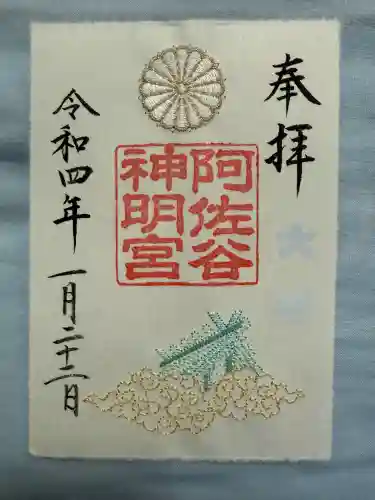 奉拝
阿佐谷
神明宮
令和四年 一月二十二日